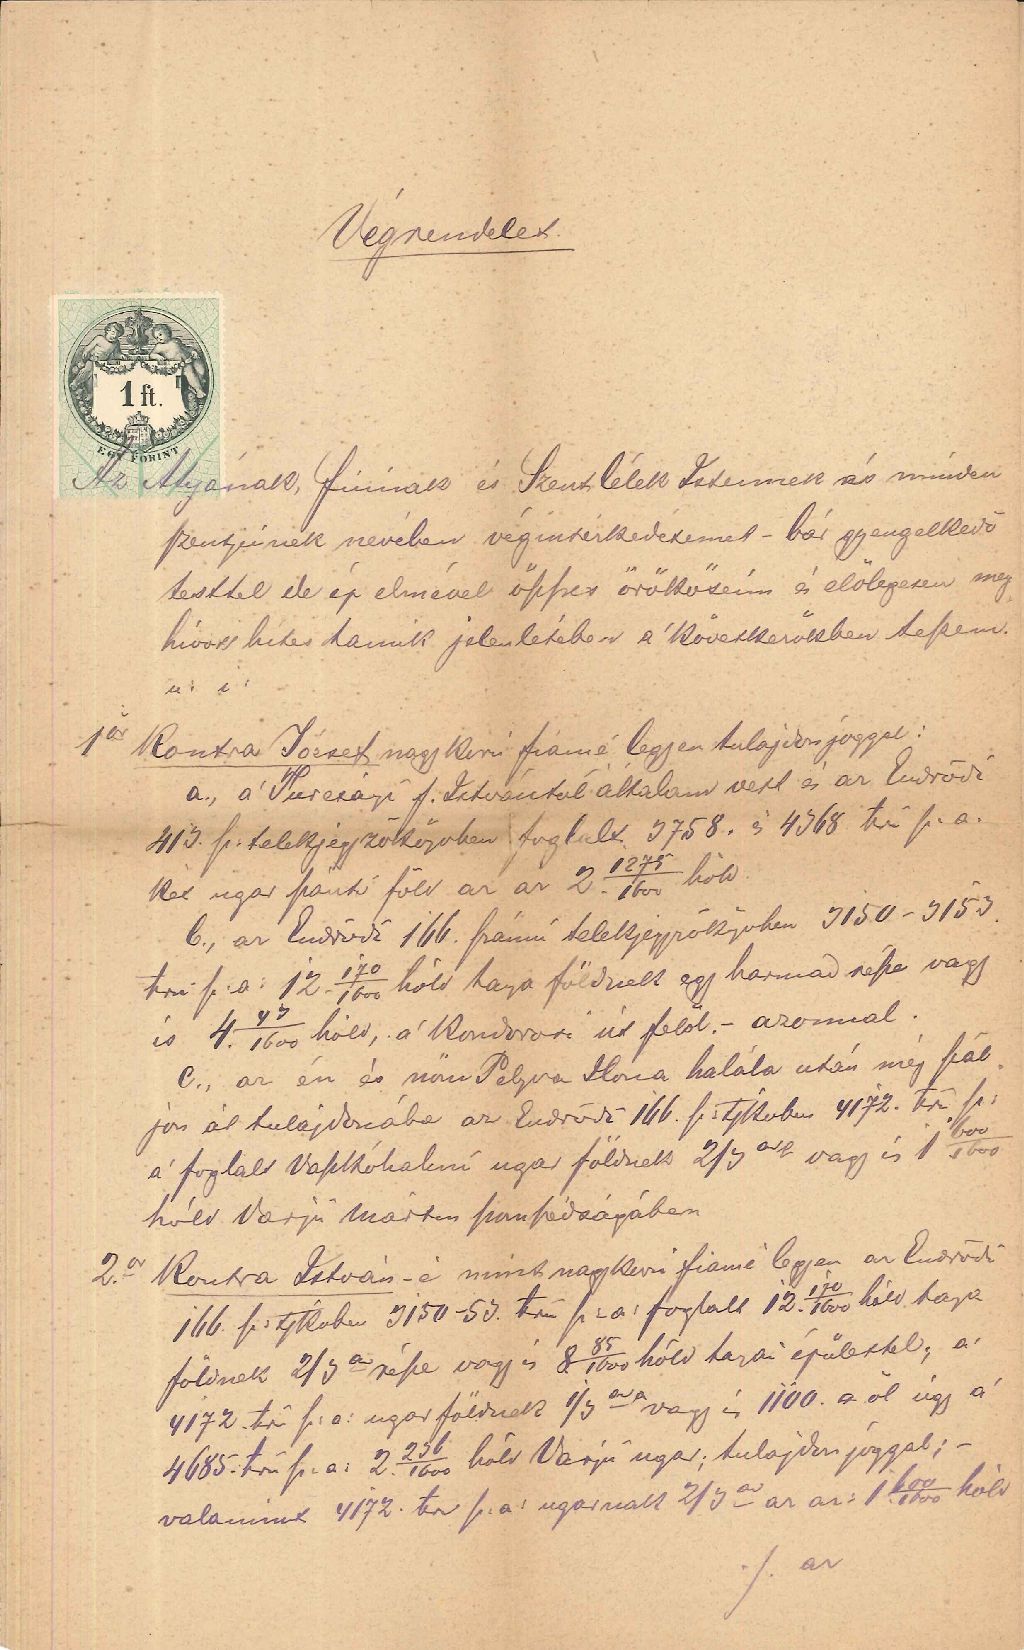 Végrendelet.
1 ft.
EGY FORINT
Az Atyának, fiúnak és Szent lélek Istennek és minden
szentjeinek nevében végintézkedésemet – bár gyengélkedő
testtel de ép elmével összes örököseim és előlegesen meg
hívott hites tanuk jelenlétében a' következőkben teszem.
u: i:
1ör Kontra József nagykorú fiamé légyen tulajdon joggal:
a., a' Turcsági f. Istvántól általam vett és az Endrődi
413. sz: telekjegyzőkőjvben foglalt 3758. és 4368 tri sz: a.
két ugar szánti föld az az 2. 1275/1600 hold.
b., az Endrődi 166. számú telekjegyzőkőjvben 3150–3153.
tri sz: a: 12. 170/1600 hold tanya földnek egy harmad része vagy
is 4. 43/1600 hold, a' Kondorosi út felől. – azonnal.
c., az én és nőm Pelyva Ilona halála után még száll
jon ál tulajdonába az Endrődi 166. sz: tjkvben 4172. tri sz:
a' foglalt Vaskóhalmi ugar földnek 2/3 ad vagy is 1 600/1600
hóld Varjú Márton szomszédságában
2.or Kontra István – é mint nagykorú fiamé légyen az Endrődi
166. sz: tjkvben 3150–53. tri sz: a: foglalt 12. 170/1600 hóld tanya
földnek 2/3 ad része vagy is 8. 85/1600 hóld tanyai épülettel; a'
4172 tri sz: a: ugar földnek 1/3 ada vagy is 1100. a öl úgy a'
4685. tri sz: a: 2. 236/1600 hóld Varjú ugar; tulajdon joggal; –
valamint 4172. tri sz: a: ugarnak 2/3 ad az az: 1 600/1600 hóld
./. az